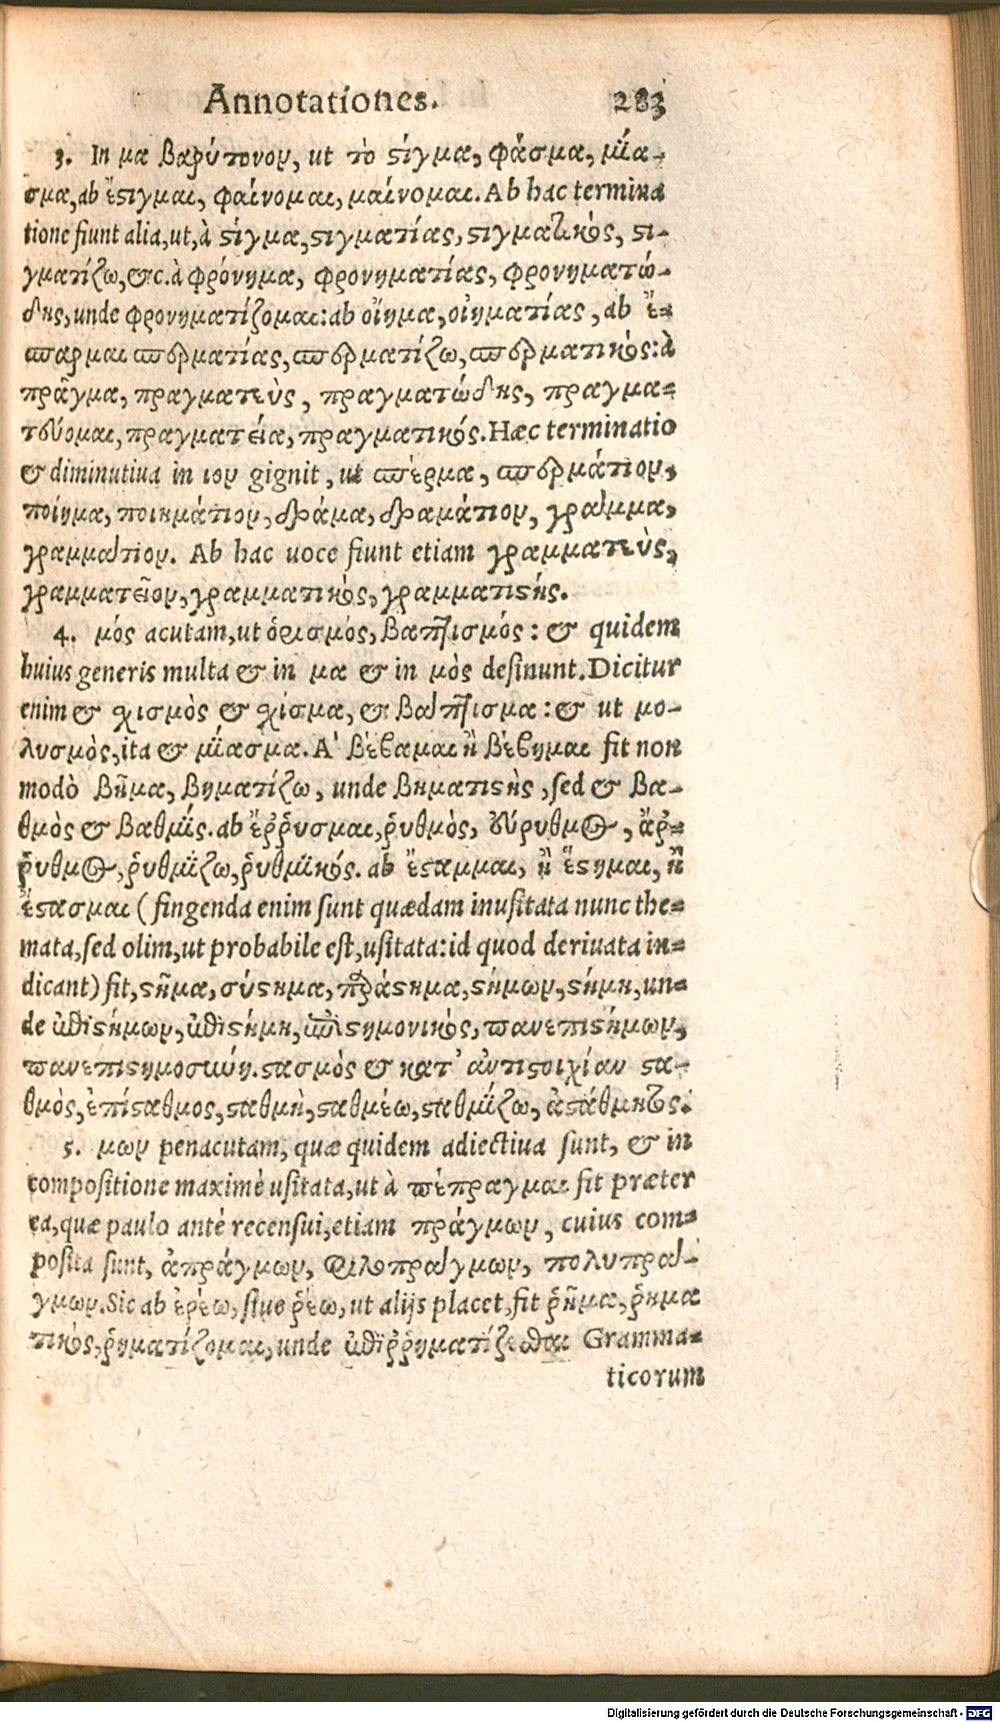 Annotationes. 283
3. In μα βαρύτονον, ut τὸ στίγμα, φάσμα, μία-
σμα, ab ἔστιγμαι, φαίνομαι, μαίνομαι. Ab hac termina
tione fiunt alia, ut, à στίγμα, στιγματίας, στιγματικός, στι-
γματίζω, &c. à φρόνημα, φρονηματίας, φρονηματώ-
δης, unde φρονηματίζομαι: ab οἴημα, οἰηματίας, ab ἔ-
σπαρμαι σπερματίας, σπερματίζω, σπερματικός: à
πρᾶγμα, πραγματεὺς, πραγματώδης, πραγμα-
τεύομαι, πραγματεία, πραγματικός. Hæc terminatio
& diminutiua in ιον gignit, ut σπέρμα, σπερμάτιον,
ποίημα, ποιημάτιον, δρᾶμα, δραμάτιον, γράμμα,
γραμμάτιον. Ab hac uoce fiunt etiam γραμματεὺς,
γραμματεῖον, γραμματικὸς, γραμματιστής.
4. μός acutam, ut ὁρισμός, βαπτισμός: & quidem
huius generis multa & in μα & in μὸς desinunt. Dicitur
enim & χισμὸς & χίσμα, & βάπτισμα: & ut μο-
λυσμὸς, ita & μίασμα. Α᾽ βέβαμαι ἢ βέβημαι fit non
modò βῆμα, βηματίζω, unde βηματιστὴς, sed & βα-
θμὸς & βαθμίς. ab ἔῤῥυσμαι, ῥυθμὸς, εὔρυθμος, ἄῤ-
ῥυθμος, ῥυθμίζω, ῥυθμικός. ab ἔσταμμαι, ἢ ἔστημαι, ἢ
ἔστασμαι (fingenda enim sunt quædam inusitata nunc the-
mata, sed olim, ut probabile est, usitata: id quod deriuata in-
dicant) fit, στῆμα, σύστημα, παράστημα, στήμων, στήμη, un-
de ἐπιστήμων, ἐπιστήμη, ἐπιστημονικὸς, πανεπιστήμων,
πανεπιστημοσύνη. στασμὸς & κατ᾽ ἀντιστοιχίαν στα-
θμὸς, ἐπίσταθμος, σταθμὴ, σταθμέω, σταθμίζω, ἀστάθμητος.
5. μων penacutam, quæ quidem adiectiua sunt, & in
compositione maximè usitata, ut à πέπραγμαι fit præter
ea, quæ paulo antè recensui, etiam πράγμων, cuius com-
posita sunt, ἀπράγμων, φιλοπράγμων, πολυπρά-
γμων. Sic ab ἐρέω, siue ῥέω, ut alijs placet, fit ῥῆμα, ῥημα
τικὸς, ῥηματίζομαι, unde ἐπιῤῥηματίζεσθαι Gramma-
ticorum
Digitalisierung gefördert durch die Deutsche Forschungsgemeinschaft - DFG